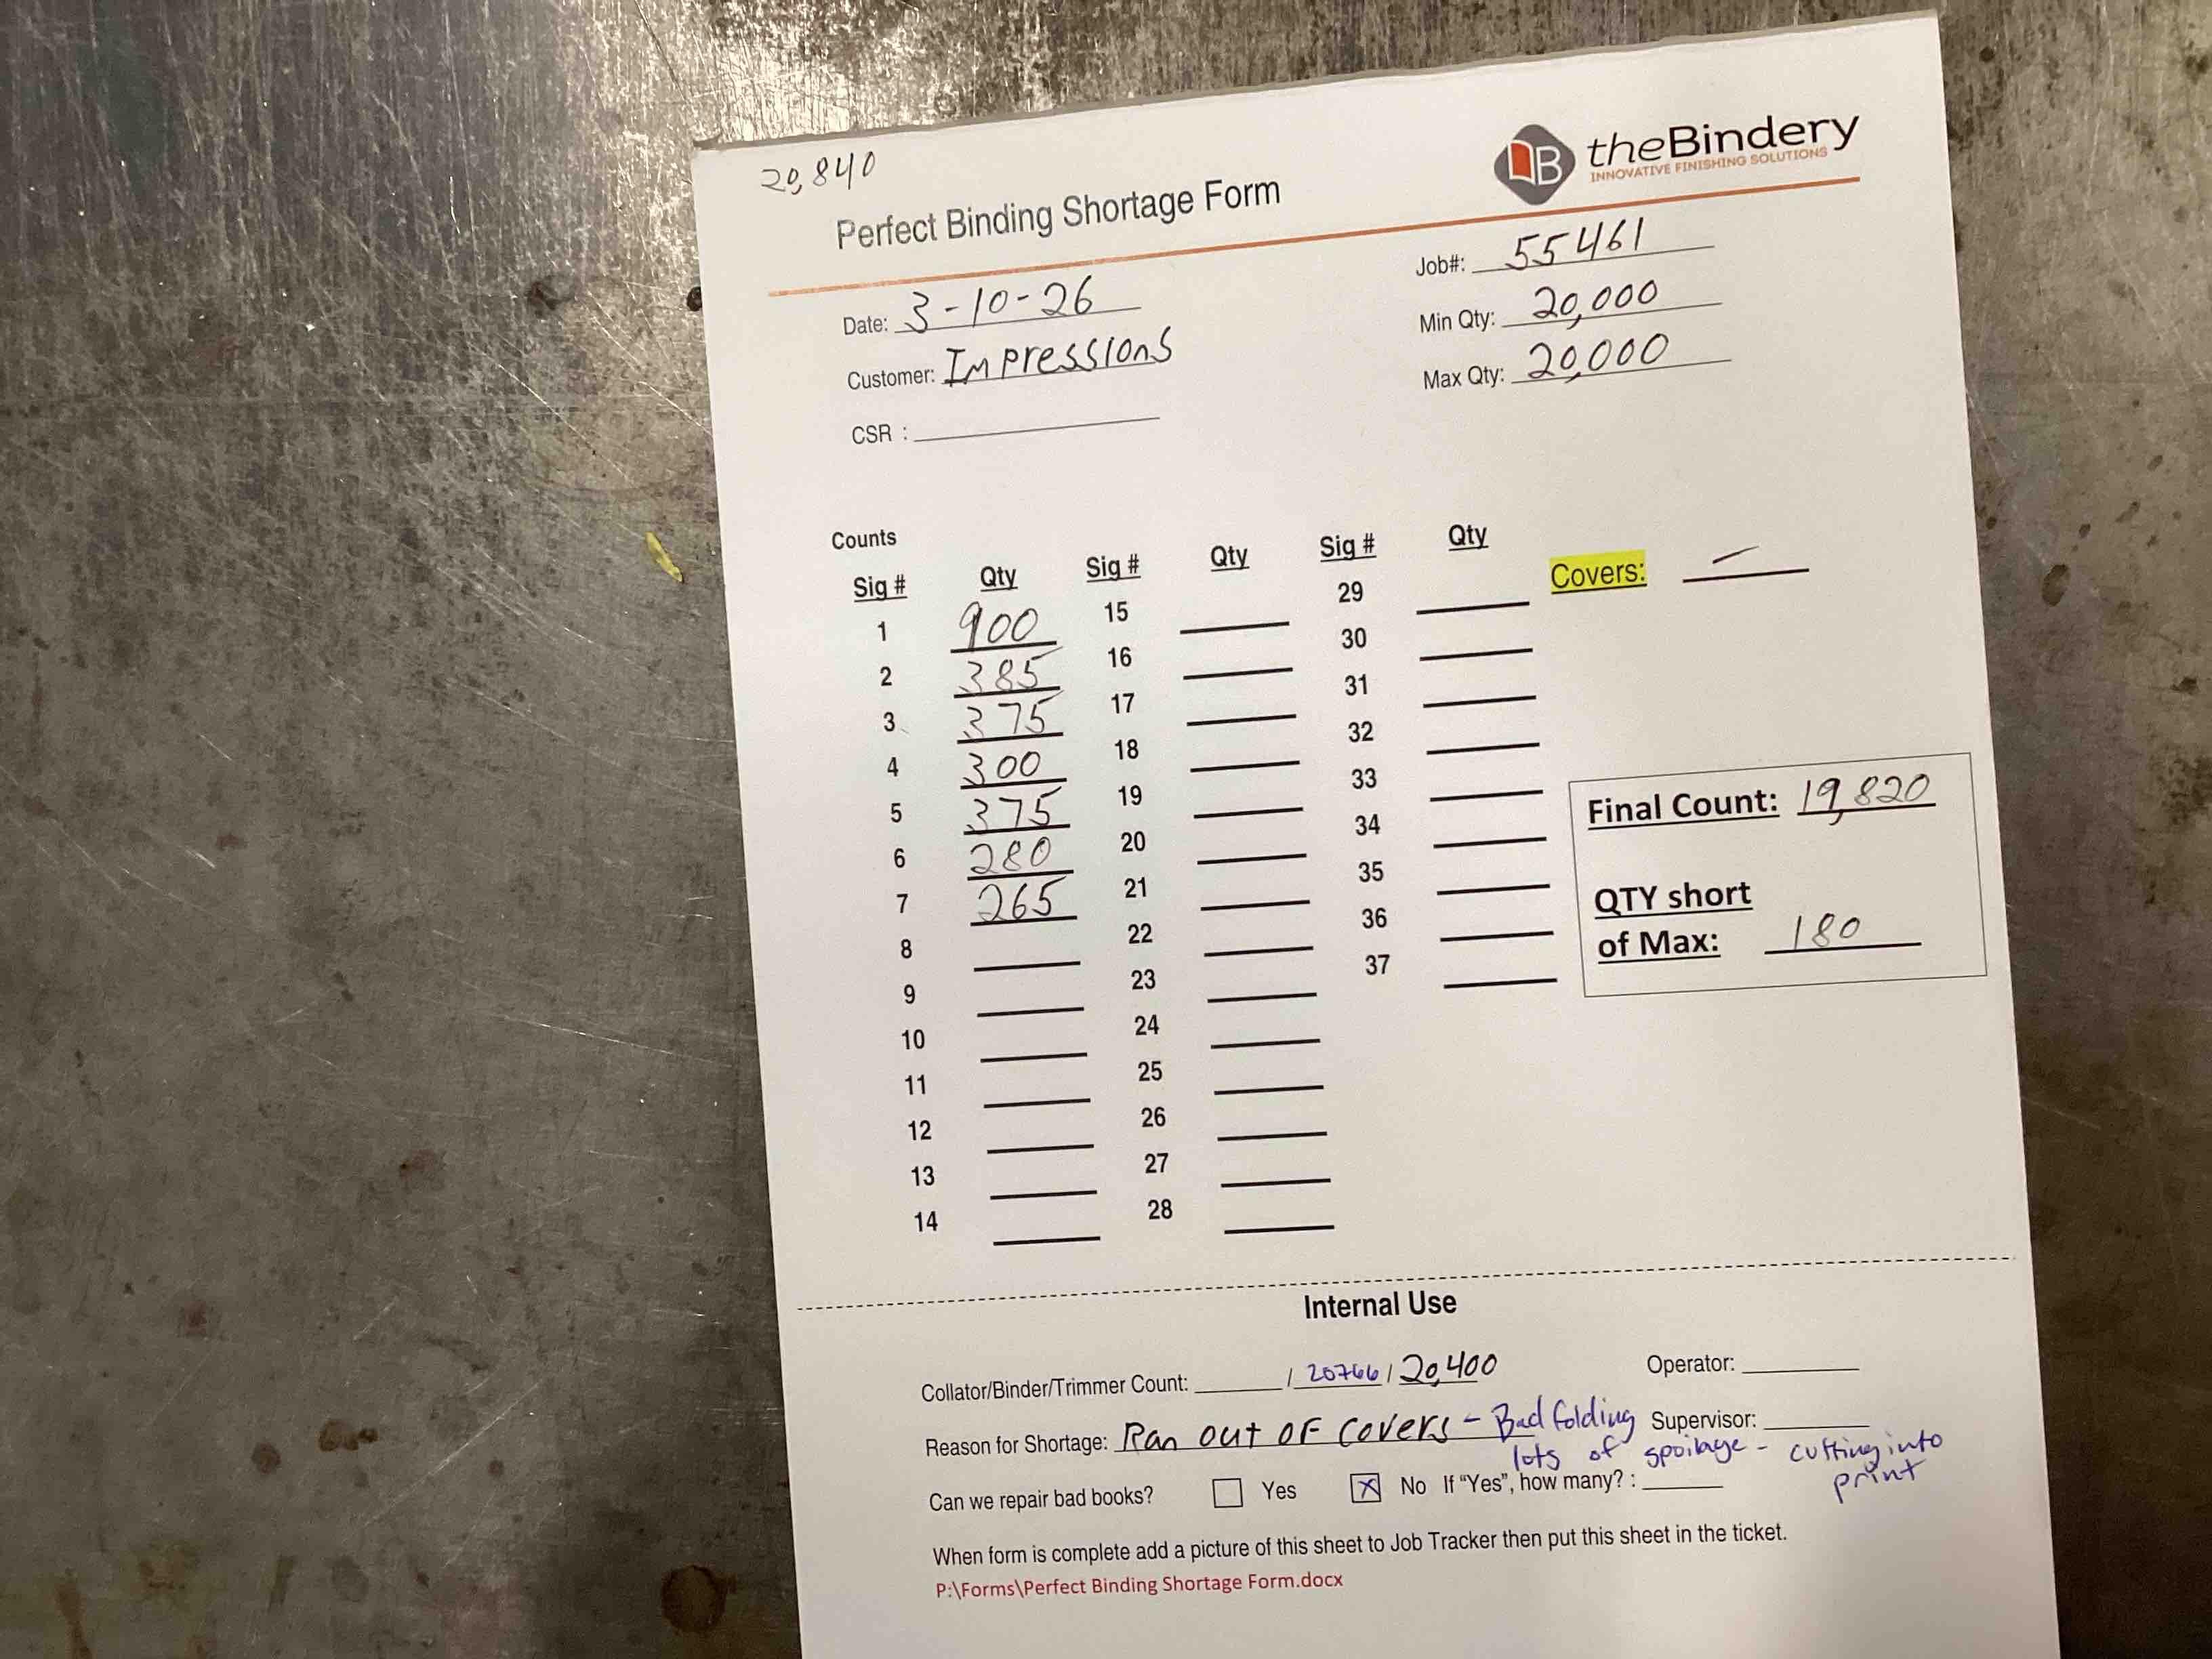 20,840
theBindery
INNOVATIVE FINISHING SOLUTIONS
Perfect Binding Shortage Form
Job#: 55461
Date: 3-10-26
Min Qty: 20,000
Customer: Impressions
Max Qty: 20,000
CSR :
Counts
Sig # Qty Sig # Qty Sig # Qty
Covers: —
1 900 15 29
2 385 16 30
3 375 17 31
4 300 18 32
5 375 19 33
6 280 20 34
7 265 21 35
8 22 36
9 23 37
10 24
11 25
12 26
13 27
14 28
Final Count: 19,820
QTY short
of Max: 180
Internal Use
Collator/Binder/Trimmer Count: / 20766 / 20,400 Operator:
Reason for Shortage: Ran out of covers - Bad folding Supervisor:
lots of spoilage - cutting into
print
Can we repair bad books? Yes X No If "Yes", how many? :
When form is complete add a picture of this sheet to Job Tracker then put this sheet in the ticket.
P:\Forms\Perfect Binding Shortage Form.docx